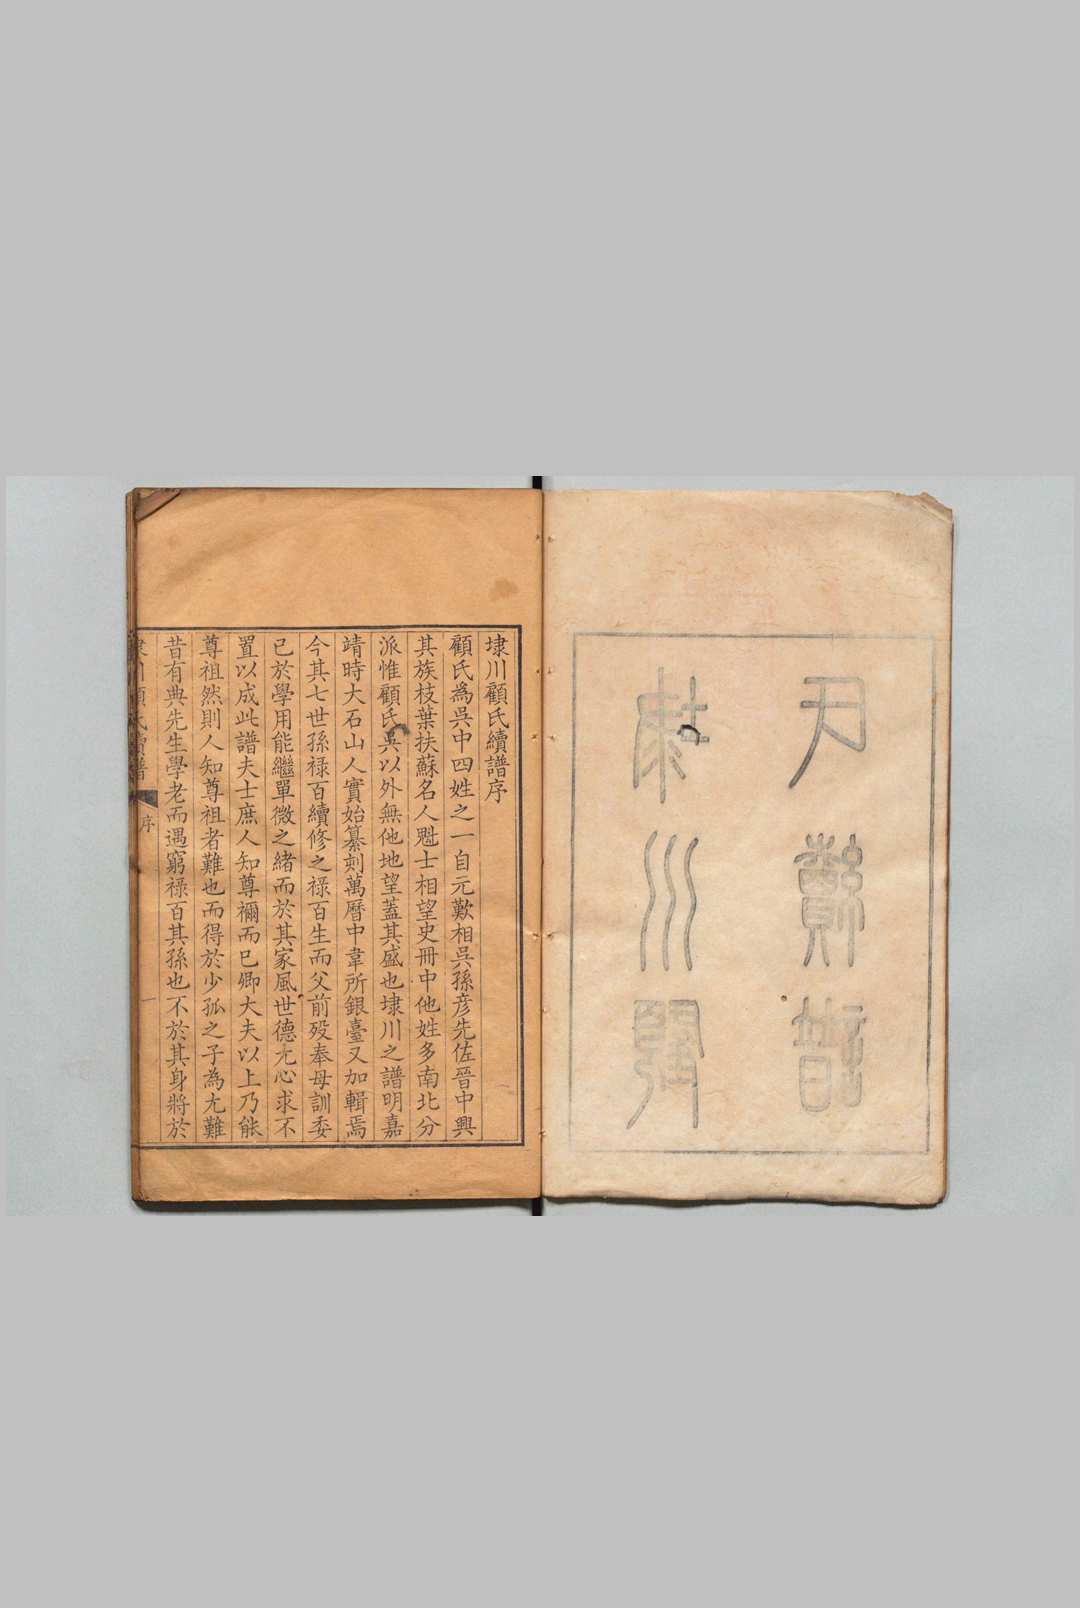 埭川顧
氏續譜
埭川顧氏續譜序
顧氏為吳中四姓之一自元歎相吳孫彥先佐晉中興
其族枝葉扶蘇名人魁士相望史冊中他姓多南北分
派惟顧氏吳以外無他地望蓋其盛也埭川之譜明嘉
靖時大石山人實始纂刻萬曆中韋所銀臺又加輯焉
今其七世孫祿百續修之祿百生而父前歿奉母訓委
已於學用能繼單微之緒而於其家風世德尤心求不
置以成此譜夫士庶人知尊禰而已卿大夫以上乃能
尊祖然則人知尊祖者難也而得於少孤之子為尤難
昔有典先生學老而遇窮祿百其孫也不於其身將於
埭川顧氏續譜 序 一